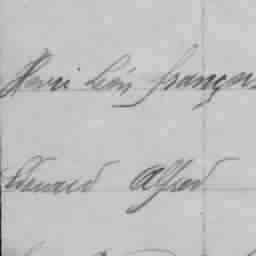 Henri Léon françois
Edouard Alfred